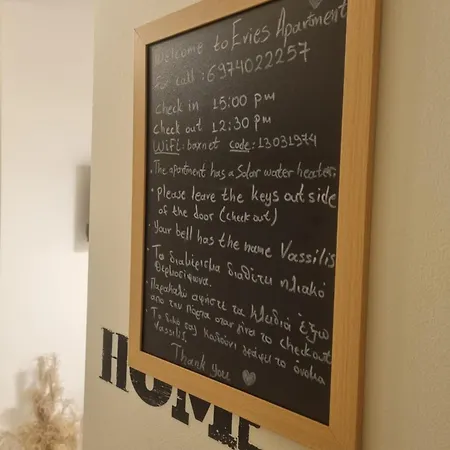 Welcome to Evies Apartment
For call: 6974022257
check in 15:00 pm
check out 12:30 pm
WiFi: boxnet code: 13031974
• The apartment has a Solar water heater.
• Please leave the keys out side
of the door (check out)
• Your bell has the name Vassilis
• Το διαμέρισμα διαθέτει ηλιακό
θερμοσίφωνα.
• Παρακαλώ αφήστε τα κλειδιά έξω
από την πόρτα όταν γίνει το check out
• Το δικό σας κουδούνι γράφει το όνομα
Vassilis
Thank you
HOME